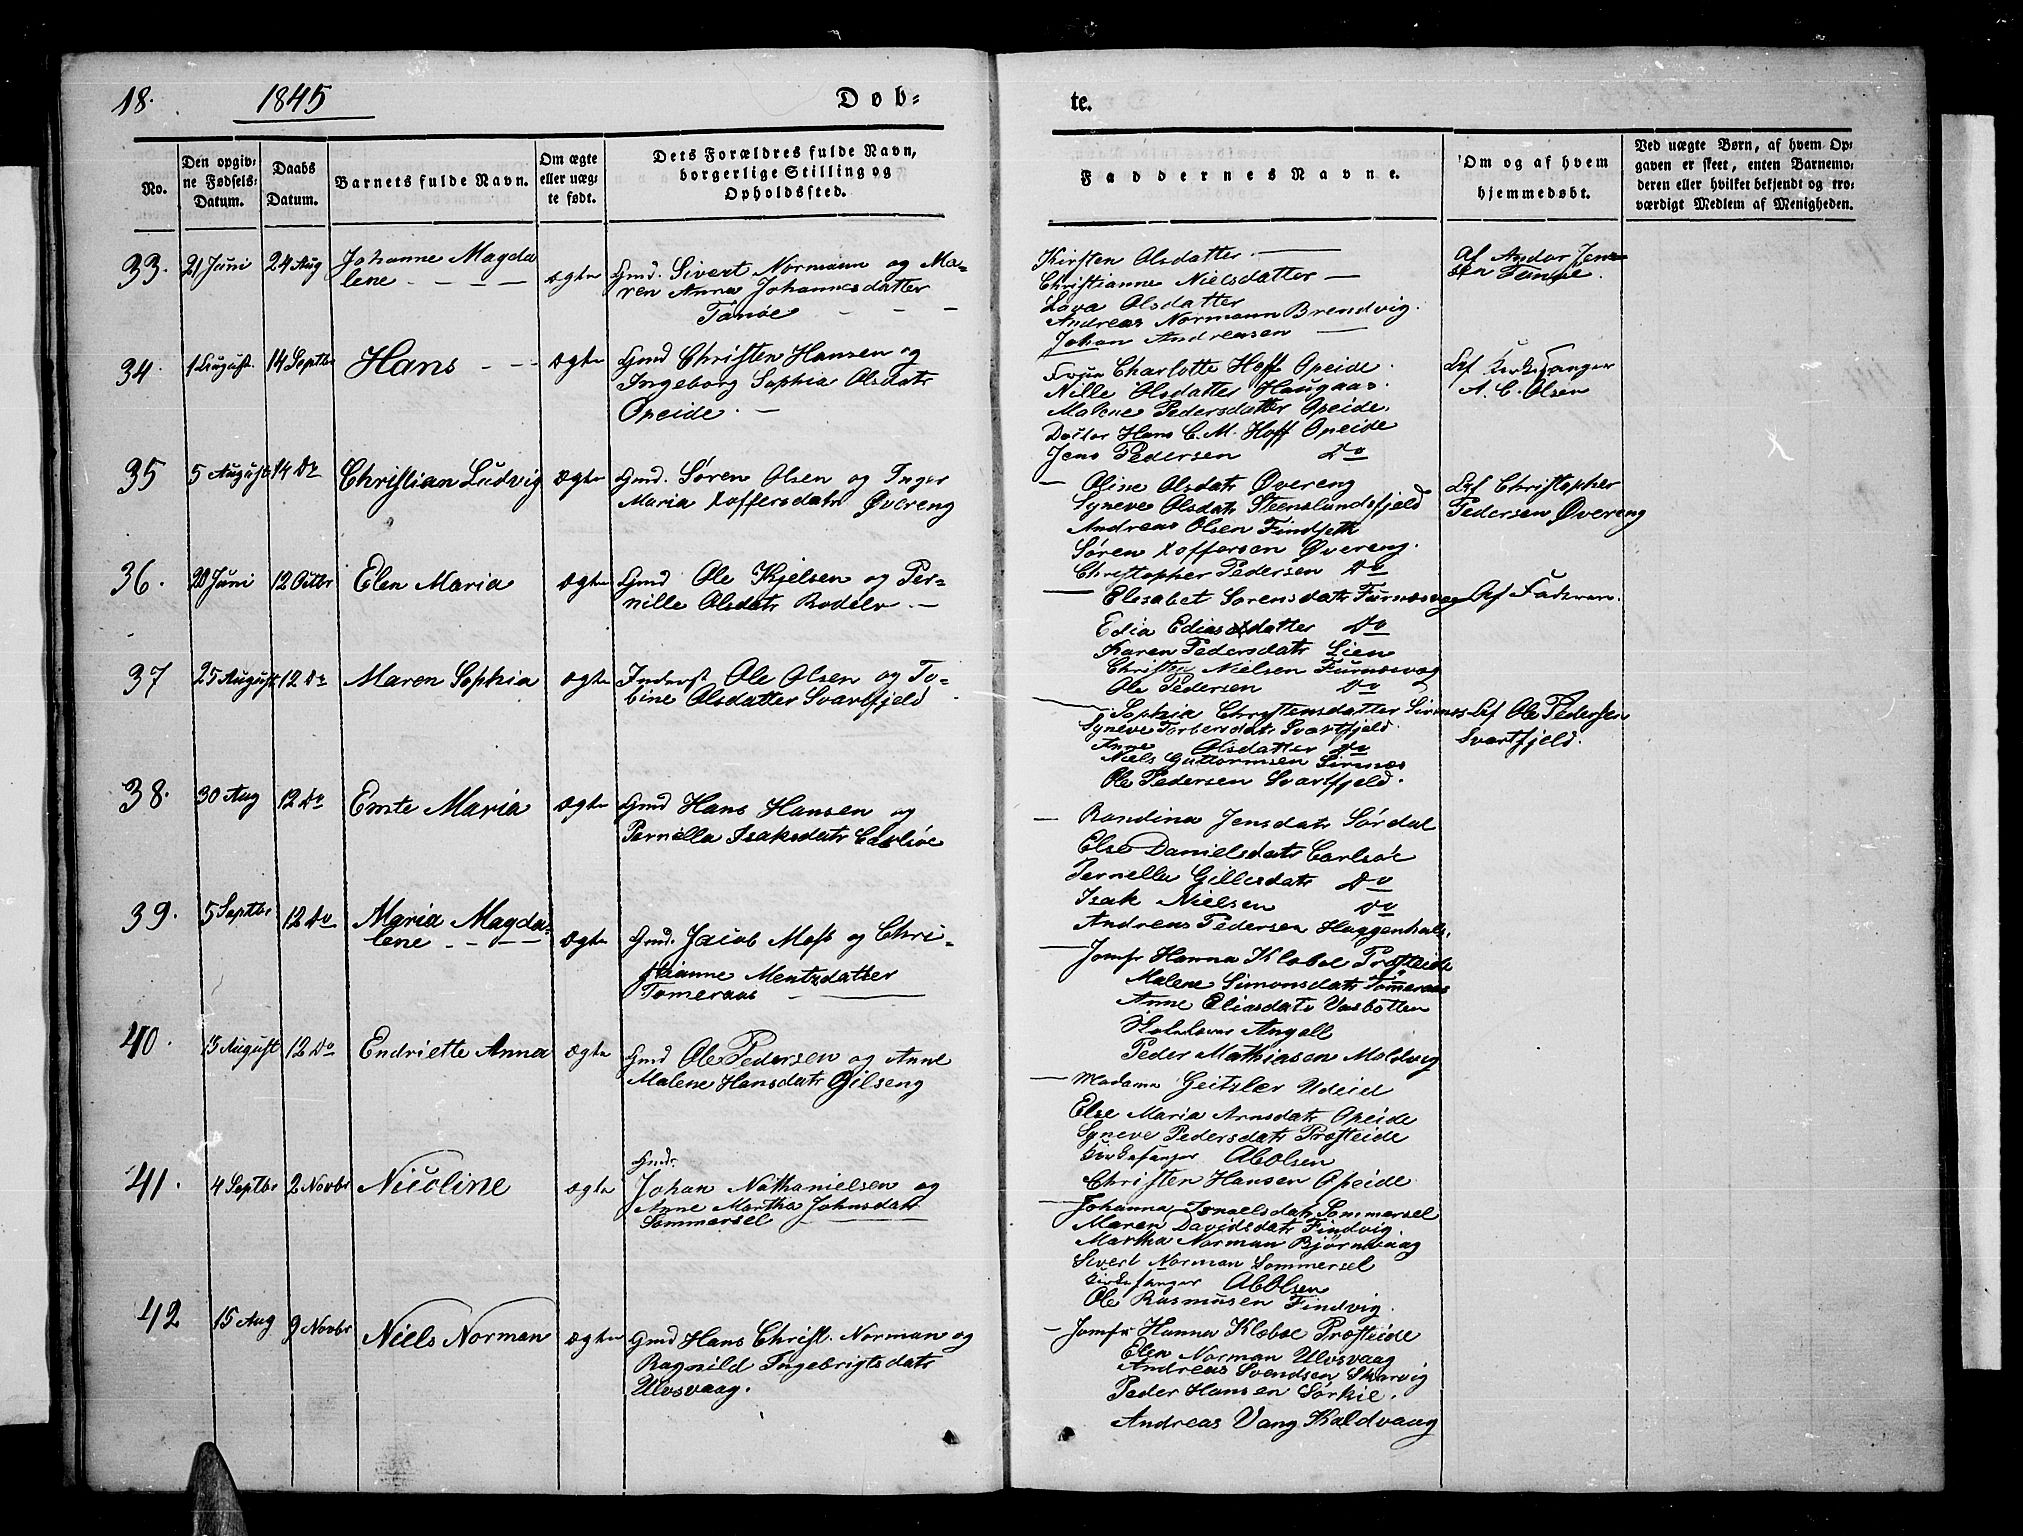 18. 1845 Døb-
te.
No.
Den opgiv-
ne Fødsels-
Datum.
Daabs
Datum.
Barnets fulde Navn.
Om ægte
eller uæg-
te født.
Dets Forældres fulde Navn,
borgerlige Stilling og
Opholdssted.
Faddernes Navne.
Om og af hvem
hjemmedøbt.
Ved uægte Børn, af hvem Op-
gaven er skeet, enten Barnemo-
deren eller hvilket bekjendt og tro-
værdigt Medlem af Menigheden.
33. 21 Juni 24 Aug Johanne Magda
lene
ægte Gmd. Sivert Normann og Ma-
ren Anna Johannesdatter
Tanøe
Kirsten Olsdatter
Christianne Nielsdatter
Lava Olsdatter
Andreas Normann Brendvig.
Johan Andreasen
Af Andor Jen-
sen Tunøe.
34. 1 August 14 Septbr Hans ægte Gmd Christen Hansen og
Ingeborg Sophia Olsdatr
Opeide.
Frue Charlotte Hoff Opeide.
Nille Olsdatter Haugaas.
Malene Pedersdatter Opeide.
Doctor Hans C. M. Hoff Opeide
Jens Pedersen Do
Af Kirkesanger
A. C. Olsen
35 5 August 14 Do Christian Ludvig ægte Gmd. Søren Olsen og Inger
Maria Xoffersdatr Øvereng
Oline Olsdatr Øvereng
Syneve Olsdatr Steenslundsfjeld
Andreas Olsen Findseth
Søren Xoffersen Øvereng.
Christopher Pedersen Do
Af Christopher
Pedersen Øvereng
36. 20 Juni 12 Octbr Elen Maria ægte Gmd Ole Kjelsen og Per-
nille Olsdatr Rodelv.
Elisabet Sørensdatr Furnæsvag
Edia Ediasdatter Do
Karen Pedersdatr Lien
Christen Nielsen Furnæsvog
Ole Pedersen Do
Af Faderen.
37 25 August 12 Do Maren Sophia ægte Inderst Ole Olsen og To-
bine Olsdatter Svartfjeld
Sophia Christensdatter Sirnæs
Syneve Torbersdatr Svartfjeld.
Anne Olsdatter Do
Niels Guttormsen Sirnæs
Ole Pedersen Svartfjeld.
Af Ole Pedersen
Svartfjeld.
38. 30 Aug 12 Do Emte Maria ægte Gmd Hans Hansen og
Pernella Isaksdatr Carlsøe
Randina Jensdatr Sørdal
Else Danielsdatr Carlsøe
Pernella Gillesdatr Do
Isak Nielsen Do
Andreas Pedersen Haggenhals.
39. 5 Septbr 12 Do Maria Magda-
lene
ægte Gmd. Jacob Mess og Chri-
stianne Mentzdatter
Tømeraas
Jomfr Hanna Klæboe Præsteide
Malene Simonsdatr Tømeraas
Anne Eliasdatr Vasbotten
Skolelærer Angell
Peder Mathiasen Moldvig
40. 13 August 12 Do Endriette Anna ægte Gmd Ole Pedersen og Anne
Malene Hansdatr Gilseng
Madame Geitzler Udeid
Else Maria Arnsdatr Opeide
Syneve Pedersdatr Præsteide
Kirkesanger A C Olsen
Christen Hansen Opeide.
41. 4 Septbr 2 Novbr Nicoline ægte Gmd.
Johan Nathanielsen og
Anne Martha Johnsdatr
Sommersel
Johanna Isaelsdatr Sommersel
Maren Davidsdatr Findvig.
Martha Norman Bjørnvaag
Sivert Norman Sommersel
Kirkesanger A C Olsen
Ole Rasmusen Findvig.
42 15 Aug 9 Novbr Niels Norman ægte Gmd Hans Christ. Norman og
Ragnild Ingebrigtsdatr
Ulvsvaag.
Jomfr Hanna Klæboe Præsteide
Elen Norman Ulvsvaag
Andreas Svendsen Skarvig
Peder Hansen Sørkie.
Andreas Vang Kaldvaag